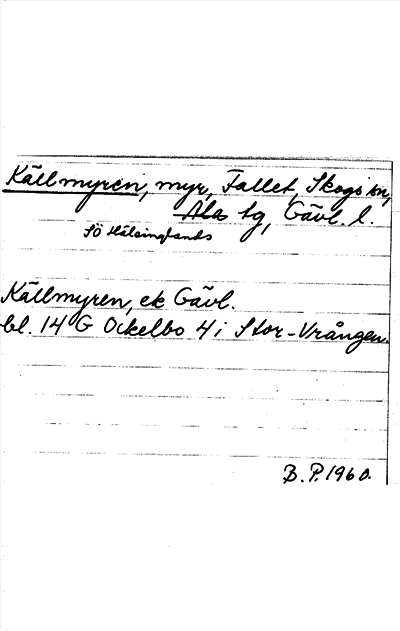 Källmyren, myr, Fallet, Skogs sn,
Ala tg, Gävl. l.
SÖ Hälsinglands
Källmyren, ek Gävl.
bl. 14 G Ockelbo 4 i Stor-Vrången.
B.P. 1960.